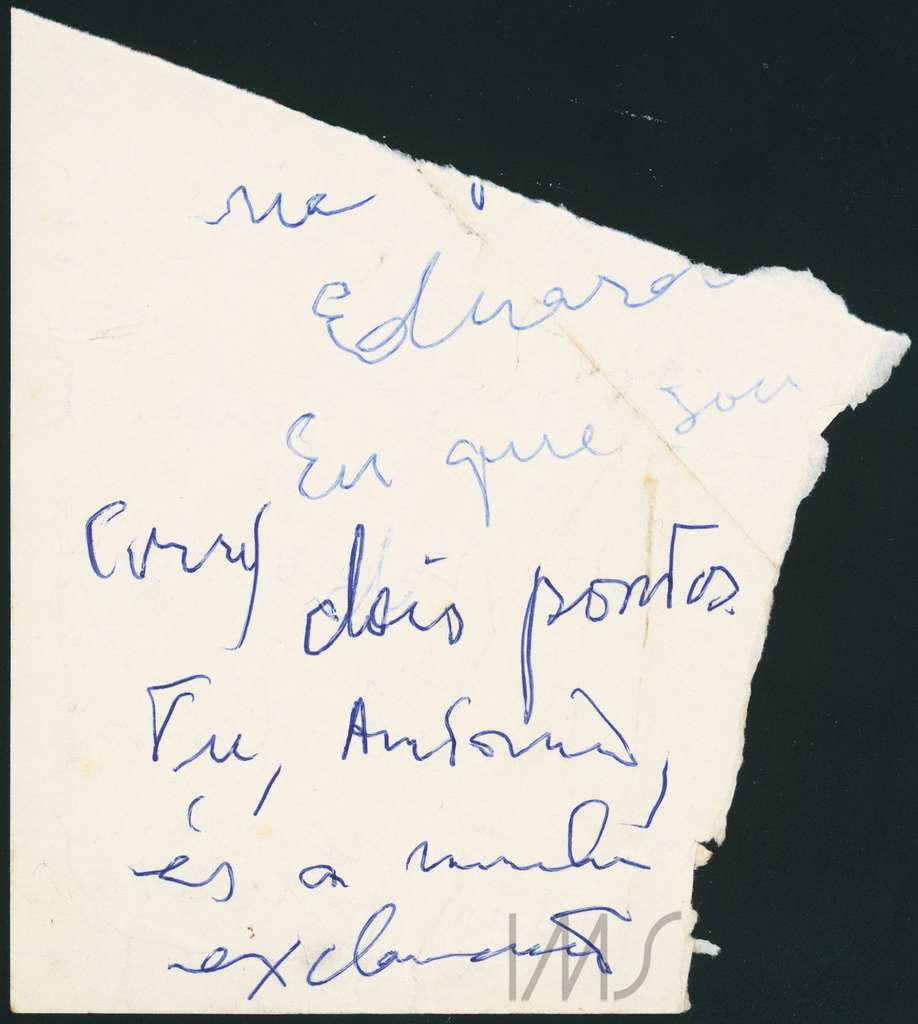 na
Eduard
Eu que sou
dois pontos
Tu, Antonio,
és a minha
exclamação
IMS